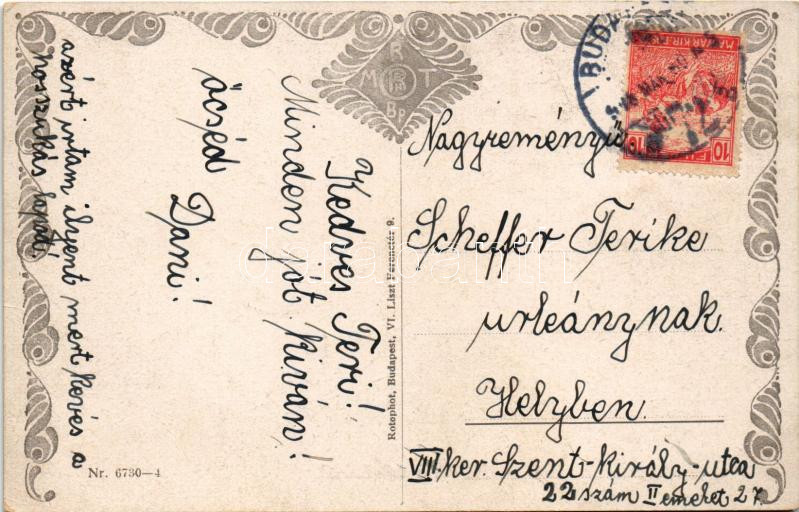 Kedves Teri!
Minden jót kiván!
öcséd
Dani!
azért irtam ilyent mert kevés a
hosszukás lapot!
Nr. 6730—4
Rotophot, Budapest, VI. Liszt Ferenctér 9.
R
M T
Bp
BUDAPEST
MAGYAR KIR. POSTA
10 10
Nagyreményü
Scheffer Terike
urleánynak.
Helyben.
VIII. ker. Szent-Király-utca
22 szám II emelet 27.